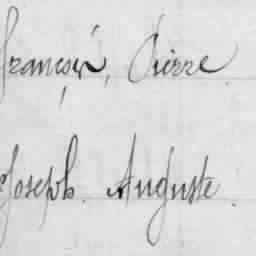 François, Pierre
Joseph. Auguste.